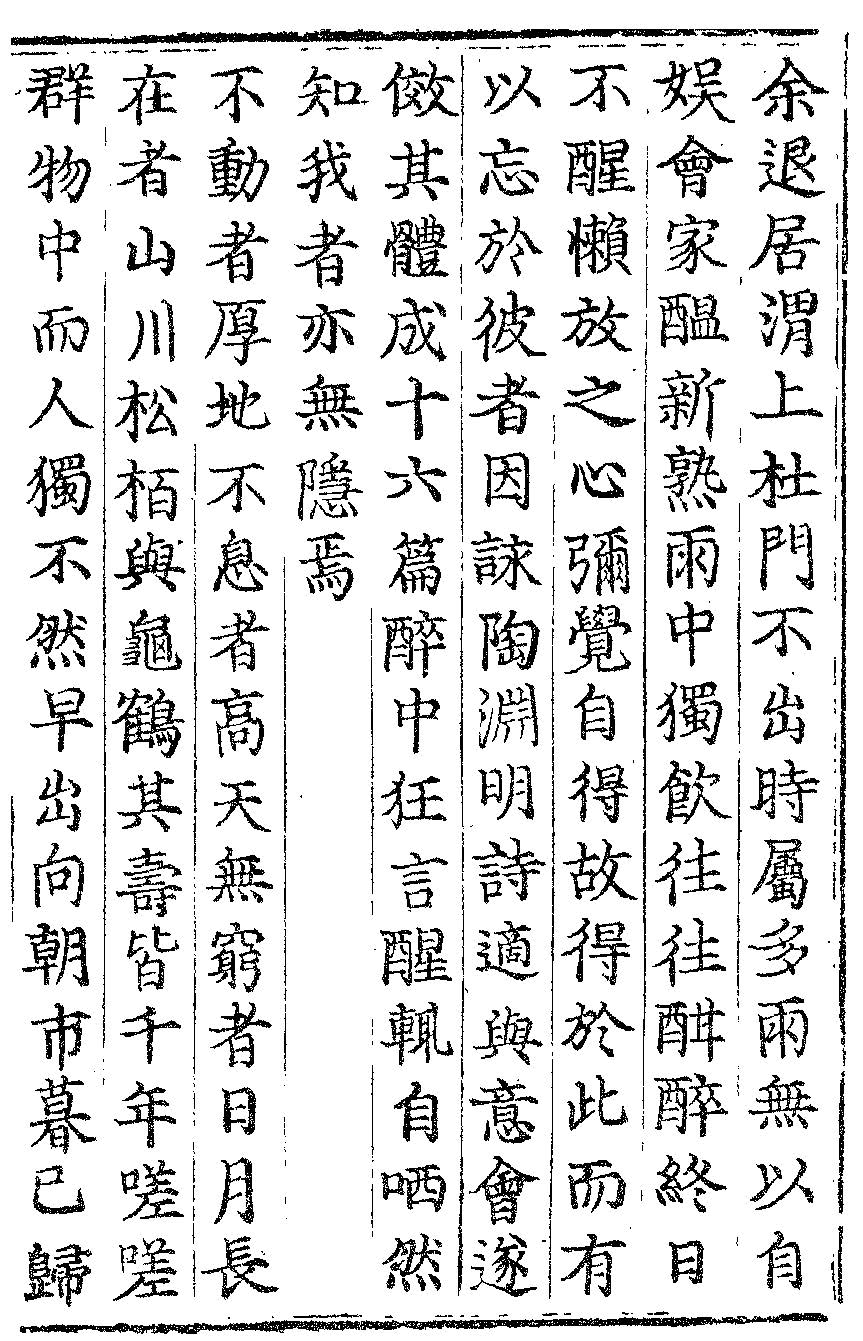 余退居渭上杜門不出時屬多雨無以自
娱會家醖新熟雨中獨飲往往酣醉終日
不醒懶放之心彌覺自得故得於此而有
以忘於彼者因詠陶淵明詩適與意會遂
傚其體成十六篇醉中狂言醒輒自哂然
知我者亦無隱焉
不動者厚地不息者高天無窮者日月長
在者山川松栢與龜鶴其壽皆千年嗟嗟
群物中而人獨不然早出向朝市暮已歸